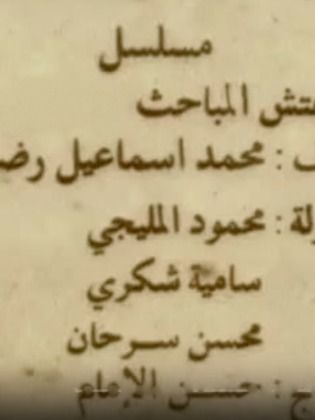 مسلسل
تش المباحث
ف : محمد اسماعيل رض
لة : محمود المليجي
سامية شكري
محسن سرحان
ج : حسن الإمام